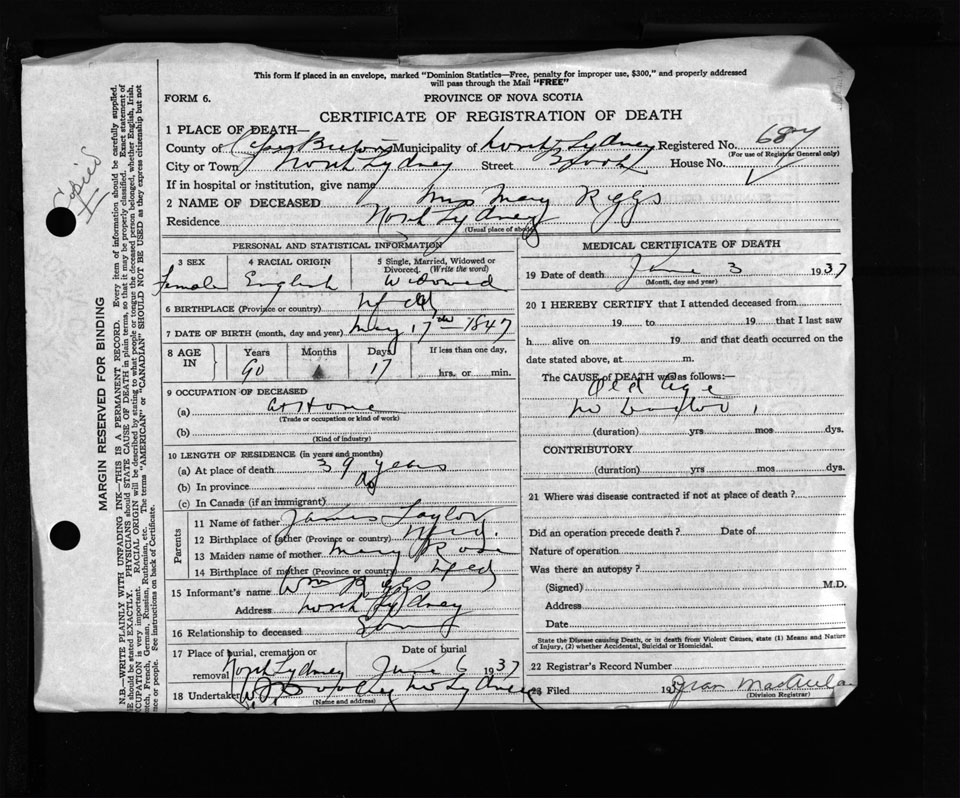 This form if placed in an envelope, marked "Dominion Statistics—Free, penalty for improper use, $300," and properly addressed
will pass through the Mail "FREE"
FORM 6.
PROVINCE OF NOVA SCOTIA
CERTIFICATE OF REGISTRATION OF DEATH
1 PLACE OF DEATH—
County of Cape Breton Municipality of North Sydney Registered No. 687
(For use of Registrar General only)
City or Town North Sydney Street House No.
If in hospital or institution, give name
2 NAME OF DECEASED Mrs Mary Riggs
Residence North Sydney
(Usual place of abode)
PERSONAL AND STATISTICAL INFORMATION
3 SEX 4 RACIAL ORIGIN 5 Single, Married, Widowed or Divorced. (Write the word)
Female English Widowed
6 BIRTHPLACE (Province or country) Nfld
7 DATE OF BIRTH (month, day and year) May 17th 1847
8 AGE IN Years Months Days If less than one day,
90 17 hrs. or min.
9 OCCUPATION OF DECEASED
(a) at Home
(Trade or occupation or kind of work)
(b)
(Kind of industry)
10 LENGTH OF RESIDENCE (in years and months)
(a) At place of death 39 years
(b) In province
(c) In Canada (if an immigrant)
Parents
11 Name of father James Taylor
12 Birthplace of father (Province or country) Nfld.
13 Maiden name of mother Mary Rose
14 Birthplace of mother (Province or country) Nfld
15 Informant's name Wm Riggs
Address North Sydney
16 Relationship to deceased Son
17 Place of burial, cremation or removal Date of burial
North Sydney June 6 1937
18 Undertaker No Sydney
(Name and address)
MEDICAL CERTIFICATE OF DEATH
19 Date of death June 3 1937
(Month, day and year)
20 I HEREBY CERTIFY that I attended deceased from
19 to 19 that I last saw
h alive on 19 and that death occurred on the
date stated above, at m.
The CAUSE of DEATH was as follows:—
Old Age
no doctor
(duration) yrs mos dys.
CONTRIBUTORY
(duration) yrs mos dys.
21 Where was disease contracted if not at place of death?
Did an operation precede death? Date of
Nature of operation
Was there an autopsy?
(Signed) M.D.
Address
Date
State the Disease causing Death, or in death from Violent Causes, state (1) Means and Nature
of Injury, (2) whether Accidental, Suicidal or Homicidal.
22 Registrar's Record Number
23 Filed 19
(Division Registrar)
Copied
MARGIN RESERVED FOR BINDING
N.B.—WRITE PLAINLY WITH UNFADING INK—THIS IS A PERMANENT RECORD. Every item of information should be carefully supplied.
be stated EXACTLY. PHYSICIANS should STATE CAUSE OF DEATH in plain terms, so that it may be properly classified. Exact statement of
OCCUPATION is very important. RACIAL ORIGIN will be described by stating to what people or tongue the deceased person belonged, whether English, Irish,
French, German, Russian, Ruthenian, etc. The terms "AMERICAN" or "CANADIAN" SHOULD NOT BE USED as they express citizenship but not
or people. See instructions on back of Certificate.